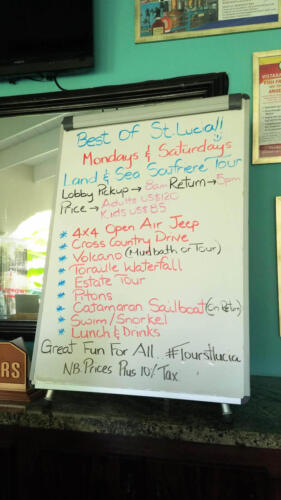 Best of St. Lucia!!
Mondays & Saturdays
Land & Sea Soufriere Tour
Lobby Pickup → 8am Return → 5pm
Price → Adults US$120
Kids US$85
* 4x4 Open Air Jeep
* Cross Country Drive
* Volcano (Mud bath or Tour)
* Toraille Waterfall
* Estate Tour
* Pitons
* Catamaran Sailboat (On Return)
* Swim/Snorkel
* Lunch & Drinks
Great Fun For All.. #Tourstlucia
NB. Prices Plus 10% Tax
ERS